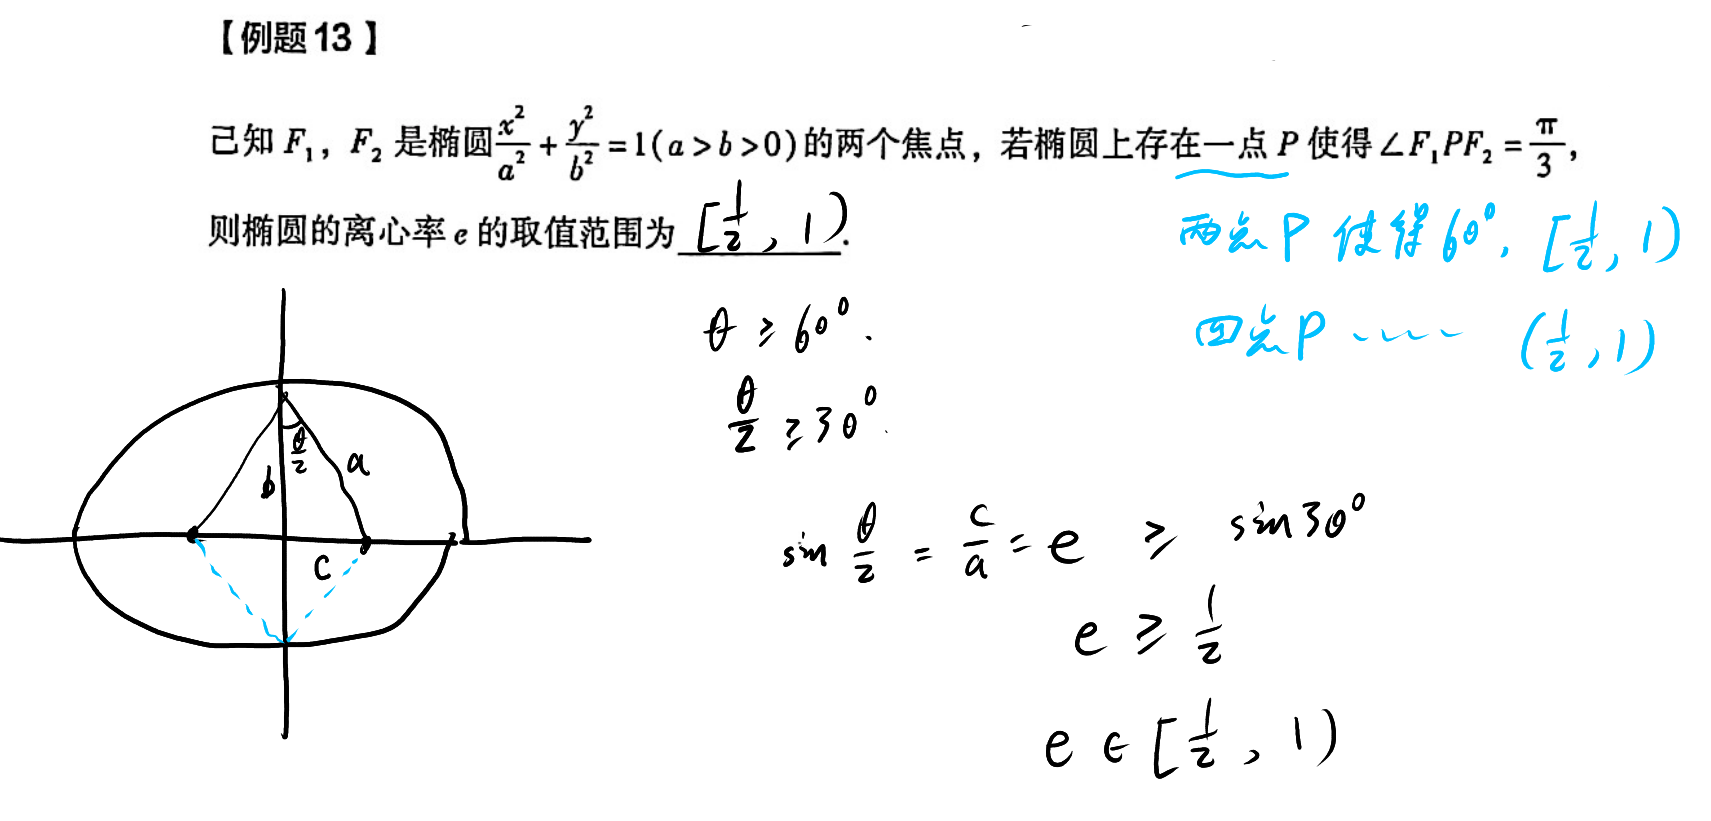 【例题13】
已知 F₁，F₂ 是椭圆 x²/a² + y²/b² = 1(a>b>0)的两个焦点，若椭圆上存在一点 P 使得∠F₁PF₂ = π/3，
则椭圆的离心率 e 的取值范围为 [1/2, 1).
两点P使得60°, [1/2, 1)
四点P ······ (1/2, 1)
θ ≥ 60°.
θ/2 ≥ 30°.
θ/2
b
a
c
sin θ/2 = c/a = e ≥ sin30°
e ≥ 1/2
e ∈ [1/2, 1)